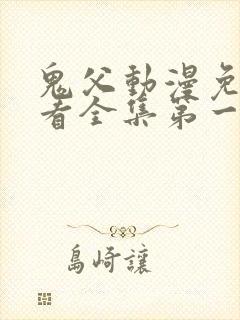 鬼父動漫免
看全集第一
島崎讓